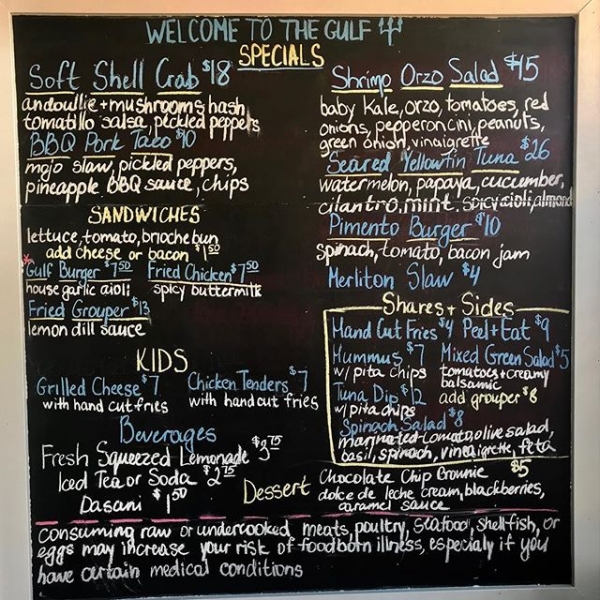 WELCOME TO THE GULF
SPECIALS
Soft Shell Crab $18
andoullie + mushrooms hash
tomatillo salsa, pickled peppers
BBQ Pork Taco $10
mojo slaw, pickled peppers,
pineapple BBQ sauce, chips
Shrimp Orzo Salad $15
baby kale, orzo, tomatoes, red
onions, pepperoncini, peanuts,
green onion, vinaigrette
Seared Yellowfin Tuna $26
watermelon, papaya, cucumber,
cilantro, mint, spicy aioli, almond
Pimento Burger $10
spinach, tomato, bacon jam
Merliton Slaw $4
SANDWICHES
lettuce, tomato, brioche bun
add cheese or bacon $1.50
*Gulf Burger $7.50 Fried Chicken $7.50
house garlic aioli spicy buttermilk
Fried Grouper $13
lemon dill sauce
KIDS
Grilled Cheese $7 Chicken Tenders $7
with hand cut fries with hand cut fries
Beverages
Fresh Squeezed Lemonade $3.75
Iced Tea or Soda $2.75
Dasani $1.50
Shares + Sides
Hand Cut Fries $4 Peel + Eat $9
Hummus $7 Mixed Green Salad $5
w/ pita chips tomatoes + creamy
balsamic
Tuna Dip $12 add grouper $8
w/ pita chips
Spinach Salad $8
marinated tomato, olive salad,
basil, spinach, vinaigrette, feta
Dessert Chocolate Chip Brownie $5
dolce de leche cream, blackberries,
caramel sauce
consuming raw or undercooked meats, poultry, seafood, shellfish, or
eggs may increase your risk of foodborn illness, especially if you
have certain medical conditions